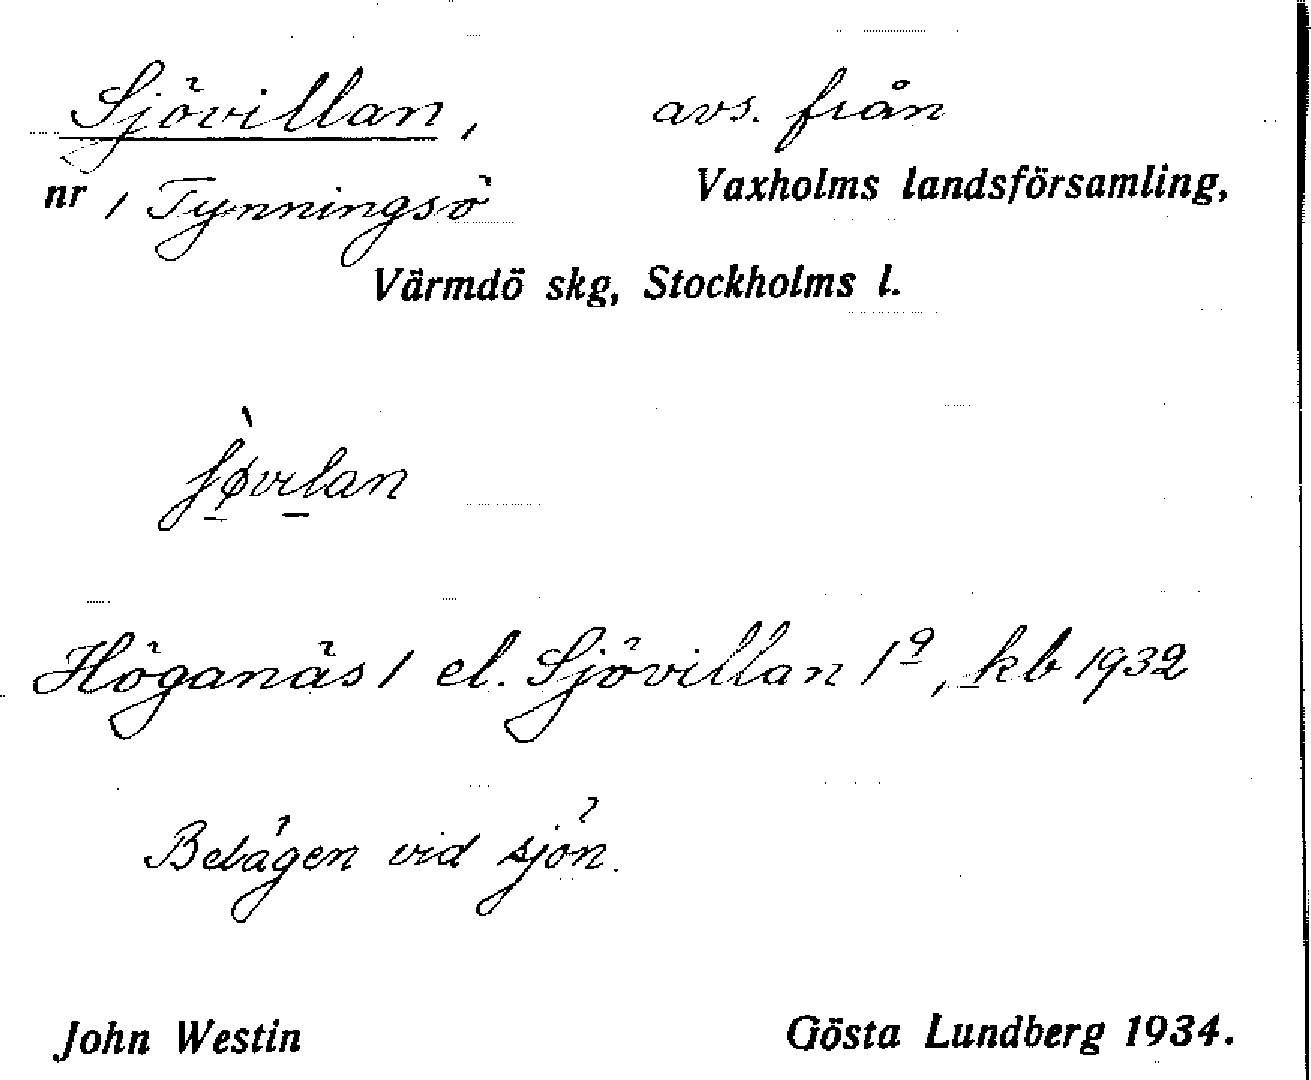 Sjövillan, avs. från
nr 1 Tynningsö Vaxholms landsförsamling,
Värmdö skg, Stockholms l.
ʃø̀vilan
Höganäs 1 el. Sjövillan 1⁹, kb 1932
Belägen vid sjön.
John Westin Gösta Lundberg 1934.